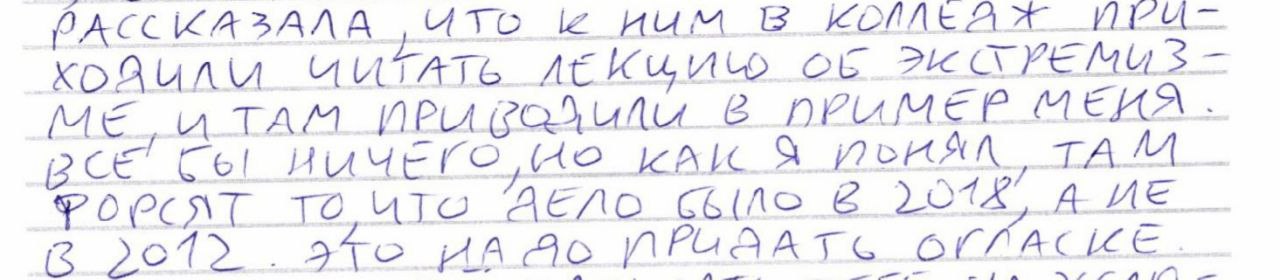 РАССКАЗАЛА, ЧТО К НИМ В КОЛЛЕДЖ ПРИ-
ХОДИЛИ ЧИТАТЬ ЛЕКЦИЮ ОБ ЭКСТРЕМИЗ-
МЕ, И ТАМ ПРИВОДИЛИ В ПРИМЕР МЕНЯ.
ВСЕ БЫ НИЧЕГО, НО КАК Я ПОНЯЛ, ТАМ
ФОРСЯТ ТО, ЧТО ДЕЛО БЫЛО В 2018, А НЕ
В 2012. ЭТО НАДО ПРИДАТЬ ОГЛАСКЕ.